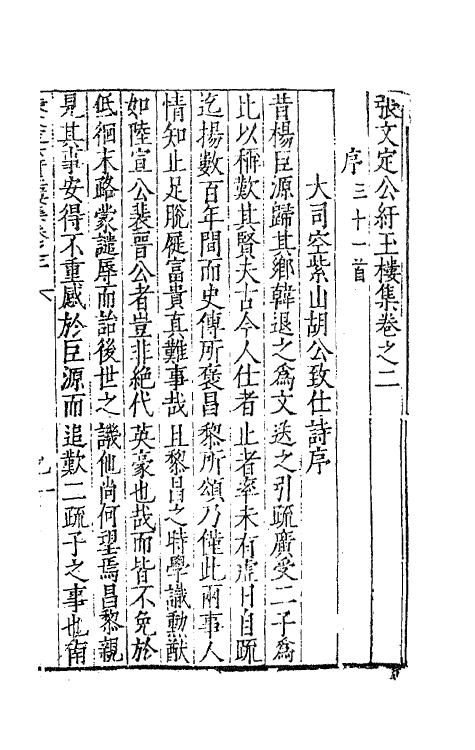 張文定公紆玉樓集卷之二
序三十一首
大司空紫山胡公致仕詩序
昔楊巨源歸其鄉韓退之為文送之引疏廣受二子為
比以稱歎其賢夫古今人仕者止者率未有虛日自疏
迄揚數百年間而史傳所褒昌黎所頌乃僅此兩事人
情知止足脫屣富貴真難事哉且黎昌之時學識勳猷
如陸宣公裴晉公者豈非絕代英豪也哉而皆不免於
低徊末路蒙譴辱而詒後世之譏他尚何望焉昌黎親
見其事安得不重感於巨源而追歎二疏子之事也